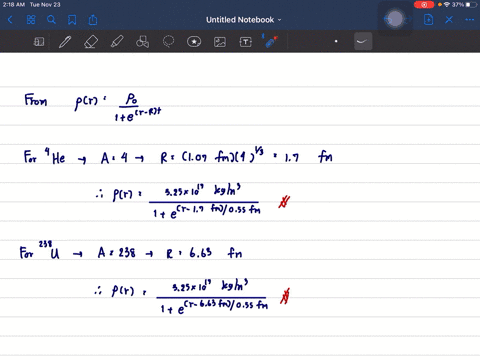 2:18 AM Tue Nov 23
37%
Untitled Notebook
From ρ(r) = ρ₀ / 1+e^((r-R)/t)
For ⁴He → A = 4 → R = (1.07 fm)(4)^(1/3) = 1.7 fm
∴ ρ(r) = 3.25×10¹⁷ kg/m³ / 1 + e^((r-1.7 fm)/0.55 fm)
For ²³⁸U → A = 238 → R = 6.63 fm
∴ ρ(r) = 3.25×10¹⁷ kg/m³ / 1 + e^((r-6.63 fm)/0.55 fm)